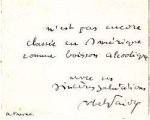 n'est pas encore
classée en Amérique
comme boisson alcoolique
avec mes
sincères salutations